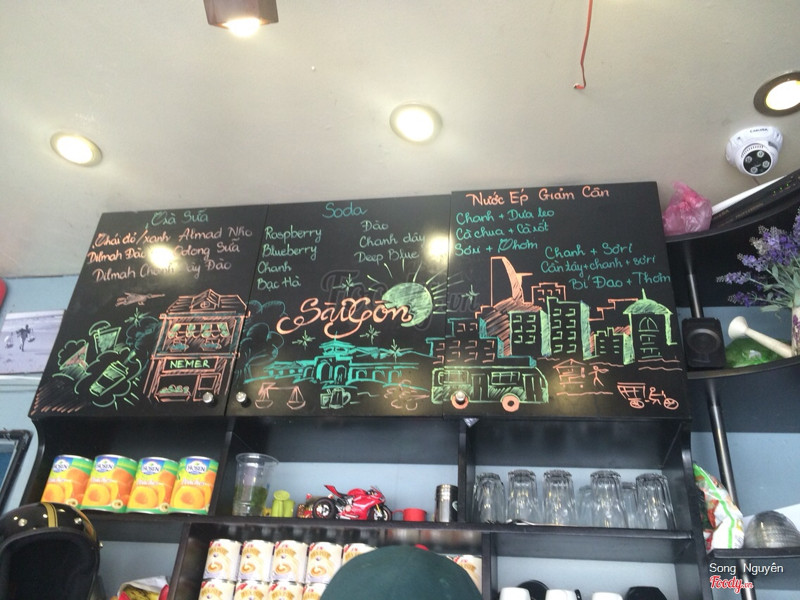 Trà Sữa
Thái đỏ/xanh Almad Nho
Dilmah Đào
Sữa
Dilmah Đào
NEMER
Soda
Raspberry
Blueberry
Chanh
Bạc Hà
Đào
Chanh dây
Deep Blue
Sài Gòn
Nước Ép Giảm Cân
Chanh + Dưa leo
Cà chua + Cà rốt
Sơri + Thơm
Chanh + Sơri
Cần tây + chanh + sơri
Bí Đao + Thơm
Song Nguyên
Foody.vn